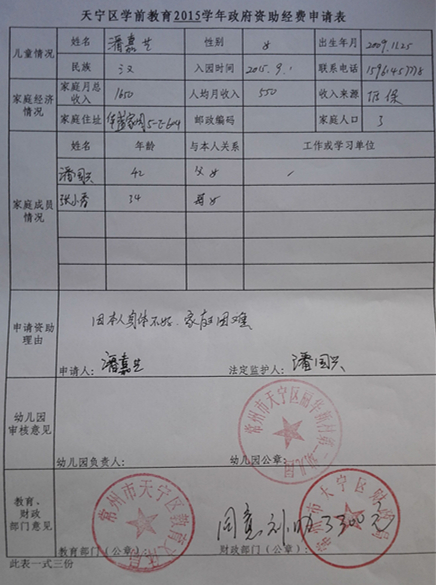 天宁区学前教育2015学年政府资助经费申请表
儿童情况
姓名 潘嘉 性别 女 出生年月 2009.11.25
民族 汉 入园时间 2015.9.1 联系电话
家庭经济情况
家庭月总收入 1650 人均月收入 550 收入来源 低保
家庭住址 邮政编码 家庭人口 3
家庭成员情况
姓名 年龄 与本人关系 工作或学习单位
潘国兴 42 父女
张小秀 34 母女
申请资助理由
因本人身体不好、家庭困难
申请人：潘嘉 法定监护人：潘国兴
幼儿园审核意见
幼儿园负责人： 幼儿园公章：
教育、财政部门意见
同意 3300元
教育部门（公章） 财政部门（公章）：
常州市天宁区教育文体局
常州市天宁区财政局
此表一式三份